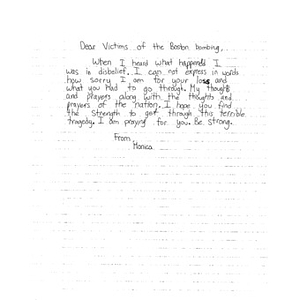 Dear Victims of the Boston bombing,
When I heard what happened I
was in disbelief. I can not express in words
how sorry I am for your loss and
what you had to go through. My thoughts
and prayers along with the thoughts and
prayers of the nation. I hope you find
the strength to get through this terrible
tragedy. I am praying for you. Be strong.
From,
Monica